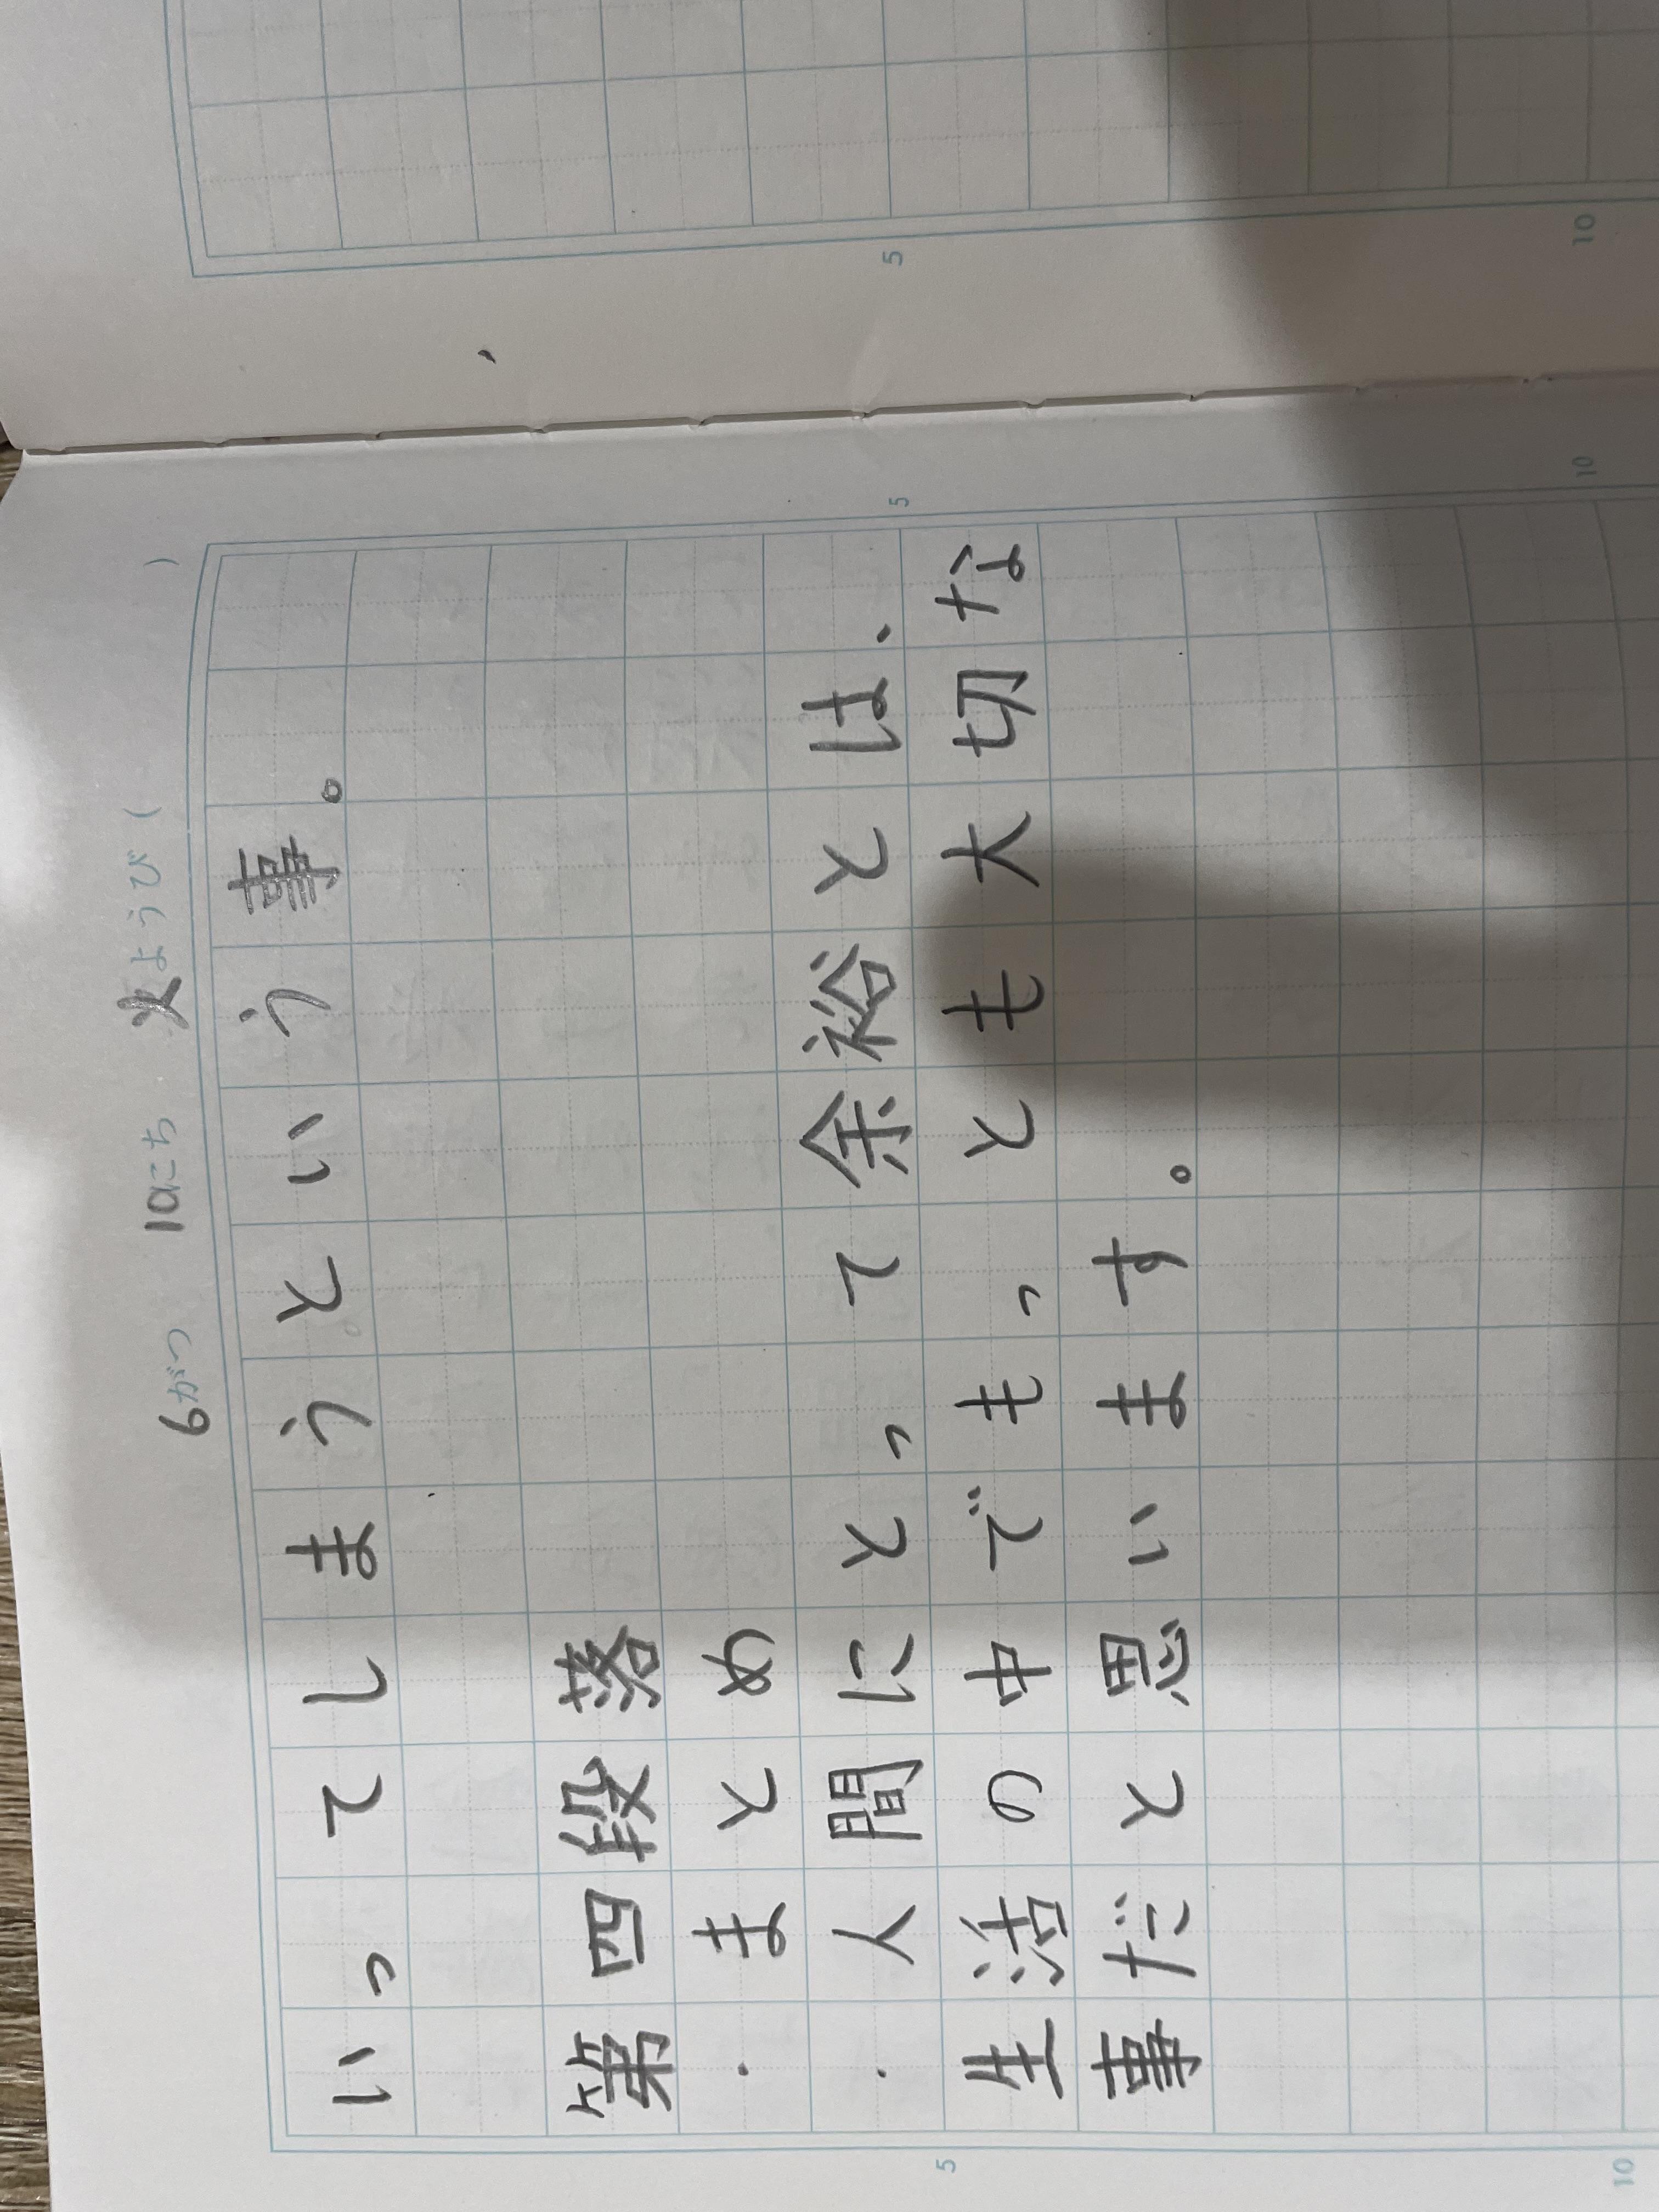 6がつ 10にち 火ようび ( )
いってしまうという事。
第四段落
・まとめ
・人間にとって余裕とは、
生活の中でもっとも大切な
事だと思います。
5
10
5
10
5
10